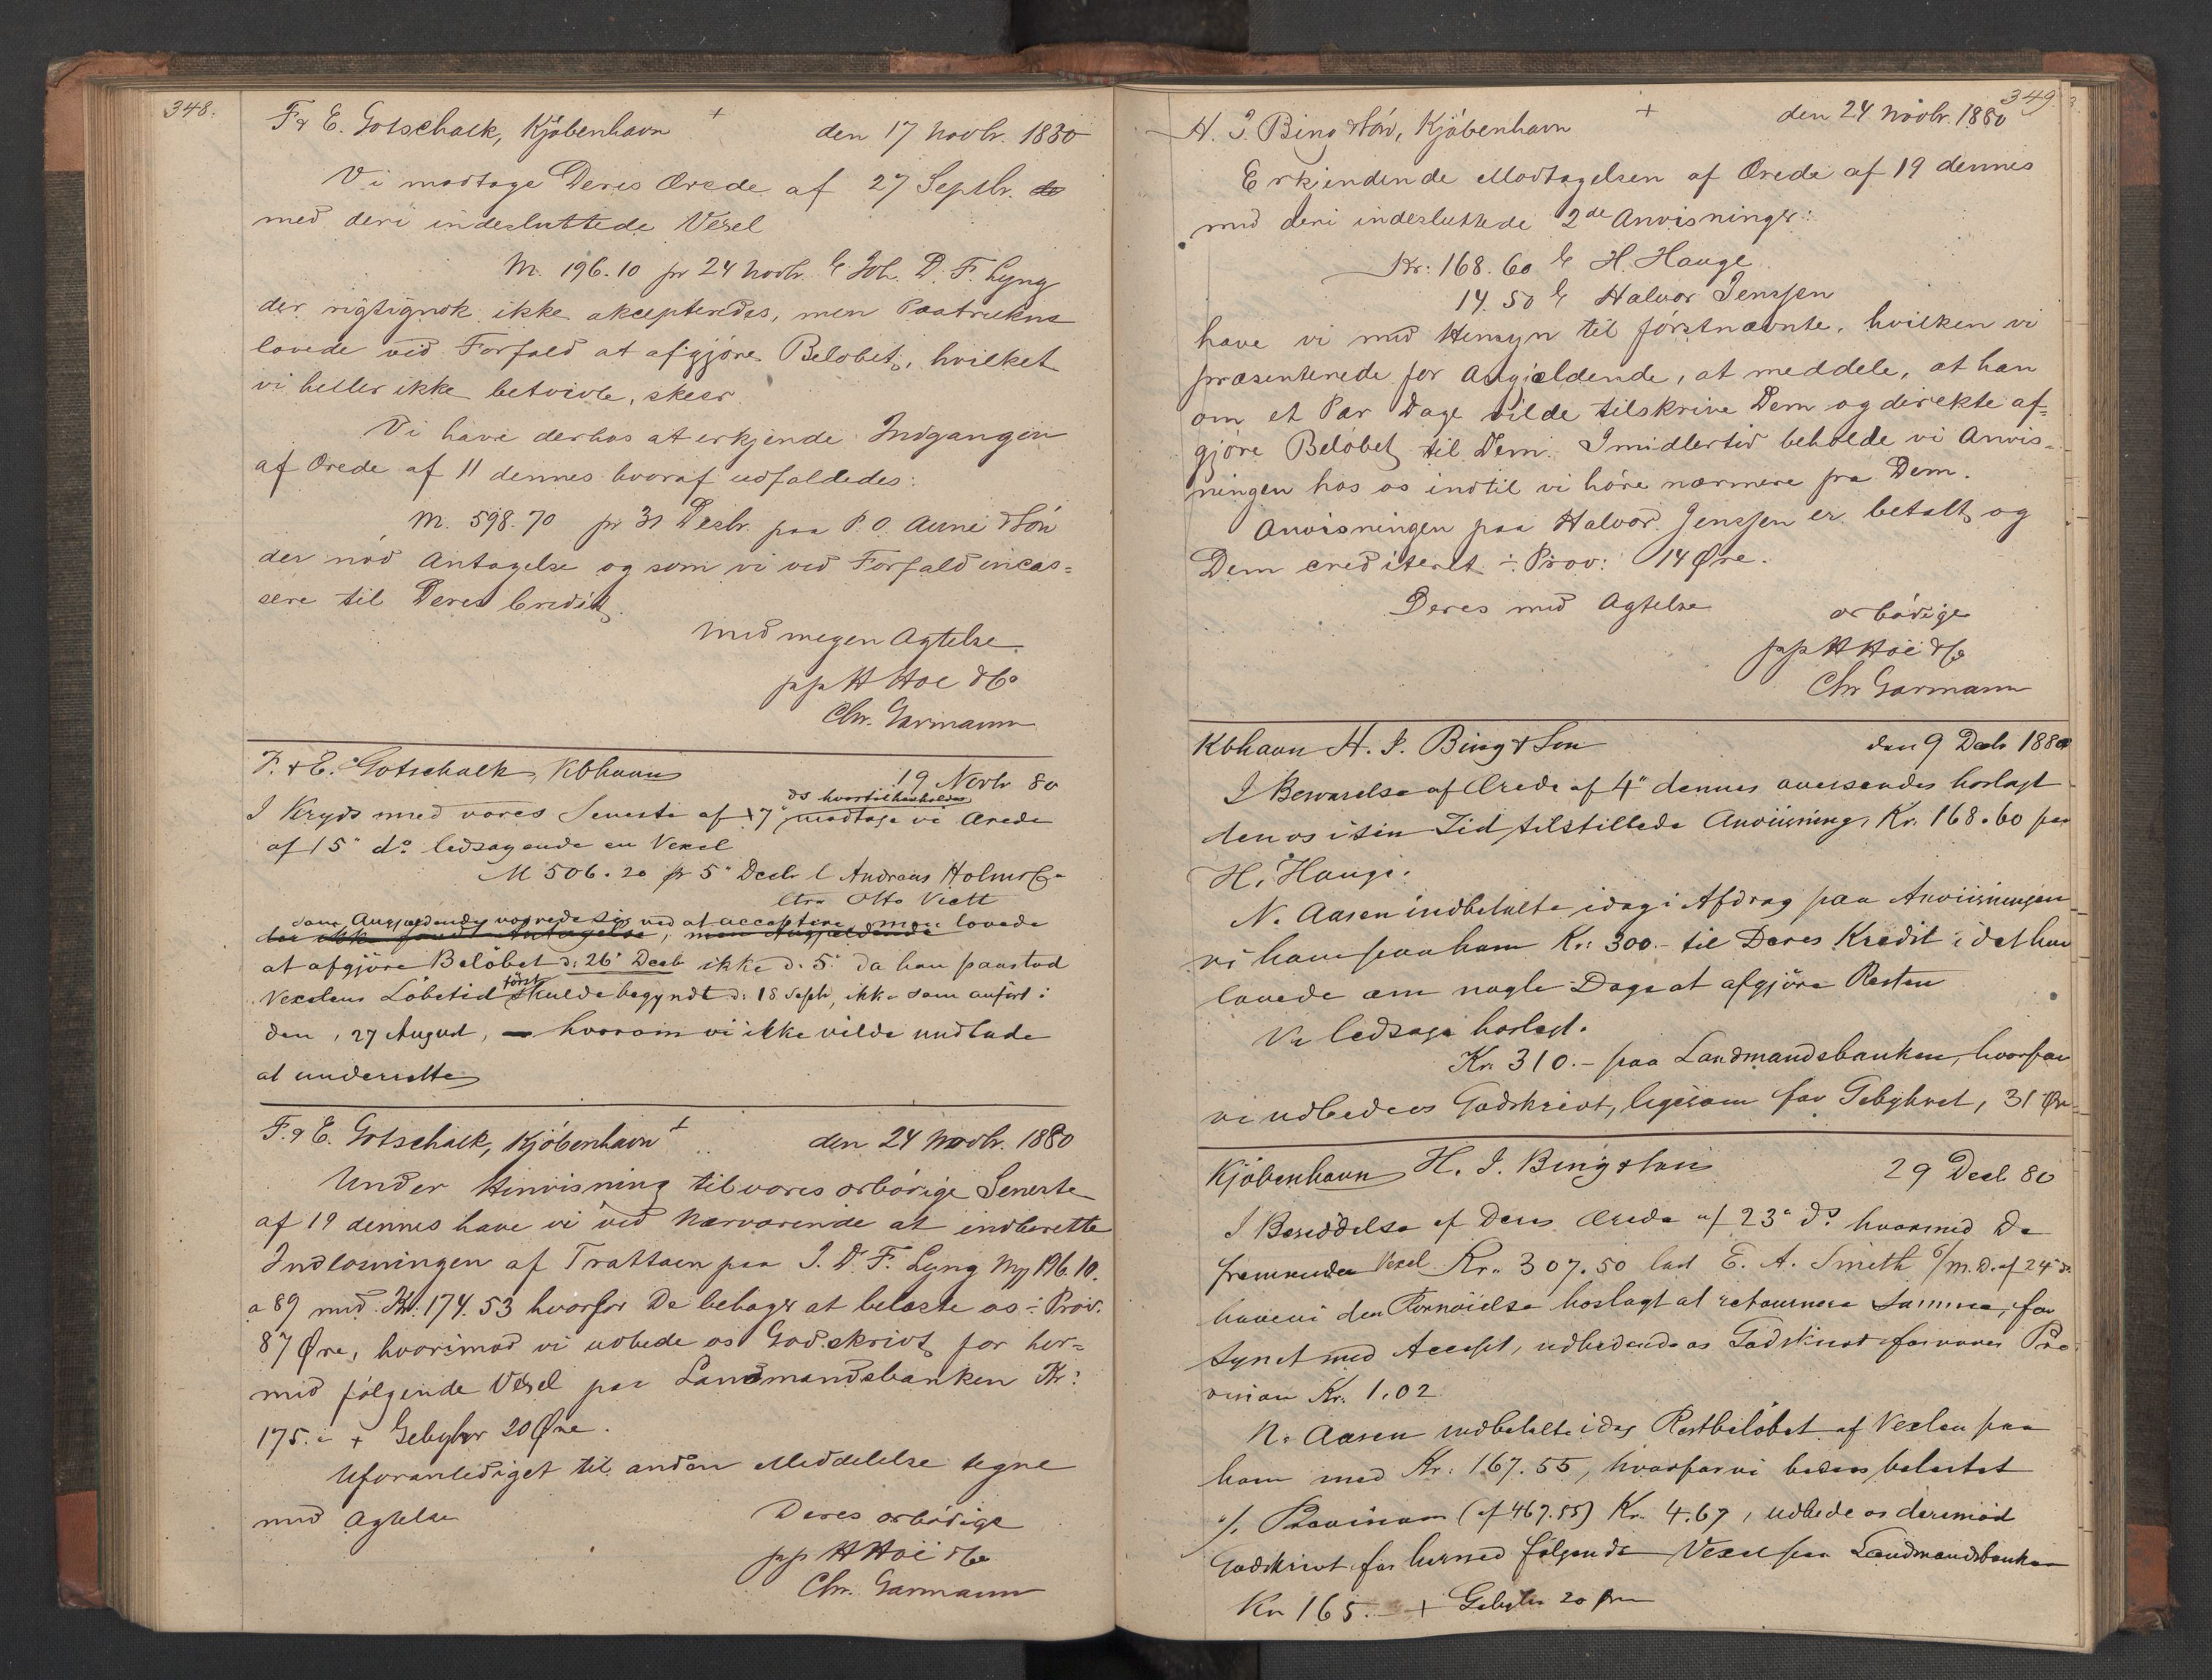 348.
F & E. Gotschalk, Kjøbenhavn + den 17 Novbr. 1880
Vi modtage Deres Ærede af 27 Septbr.
med deri indesluttede Vexel
M. 196.10 pr 24 Novbr. Joh. D. F. Lyng
der rigtignok ikke akcepteredes, men Paatrukne
lovede ved Forfald at afgjöre Belobet, hvilket
vi heller ikke betvivle, skeer.
Vi have derhos at erkjende Indgangen
af Ærede af 11 dennes hvoraf udfaldedes:
M. 598.70 pr 31 Decbr. paa P. O. Aune & Sön
der nöd Antagelse og som vi ved Forfald incas=
sere til Deres Credit.
Med megen Agtelse
pp H Höe & Co
Chr. Garmann
F. & E. Gotschalk, Kbhavn 19 Novbr 80
ds hvortil henholdes
I Kryds med vores Seneste af 17 modtage vi Ærede
af 15 do ledsagende en Vexel
M 506.20 pr 5 Decb Andreas Holms
Otto Viett
som Angjældende vægrede sig ved at acceptere, men lovede
der ikke fandt Antagelse, men Angjældende
at afgjöre Belöbet d. 26 Decb ikke d. 5. da han paastod
Vexelens Löbetid först skulde begyndt d. 18 Septb, ikke som anfört i
den, 27 August, – hvorom vi ikke vilde undlade
at underrette
F. & E. Gotschalk, Kjöbenhavn + den 24 Novbr. 1880
Under Henvisning til vores ærbörige Seneste
af 19 dennes have vi ved Nærværende at indberette
Indlösningen af Trattaen paa J. D. F. Lyng M 196.10.
a 89 med Kr. 174.53 hvorfor De behager at belaste os ÷ Prov.
87 Øre, hvorimod vi udbede os Godskrivt for her=
med fölgende Vexel paa Landmandsbanken Kr:
175.÷ + Gebyhr 20 Øre.
Uforanlediget til anden Meddelelse tegne
med Agtelse Deres ærbödige
pp H Höe & Co
Chr. Garmann
349.
H. J. Bing & Sön, Kjöbenhavn + den 24 Novbr. 1880
Erkjendende Modtagelsen af Ærede af 19 dennes
med deri indesluttede 2de Anvisninger:
Kr: 168.60 H. Hauge
14.50 Halvor Jenssen
have vi med Hensyn til förstnævnte, hvilken vi
præsenterede for Angjældende, at meddele, at han
om et Par Dage vilde tilskrive Dem og direkte af=
gjöre Belöbet til Dem. Imidlertid beholde vi Anvis=
ningen hos os indtil vi höre nærmere fra Dem.
Anvisningen paa Halvor Jenssen er betalt og
Dem crediteret ÷ Prov: 14 Øre.
Deres med Agtelse ærbödige
pp H Höe & Co
Chr Garmann
Kbhavn H. J. Bing & Son den 9 Decb 1880
I Besvarelse af Ærede af 4 dennes oversendes hoslagt
den os i sin Tid tilstillede Anviisning, Kr. 168.60 paa
H. Hauge.
N. Aasen indbetalte idag i Afdrag paa Anviisningen
vi have paa ham Kr: 300.– til Deres Kredit idet han
lovede om nogle Dage at afgjöre Resten
Vi ledsage hoslagt.
Kr. 310.– paa Landmandsbanken, hvorfor
vi udbede os Godskrivt, ligesom for Gebyhret, 31 Øre
Kjöbenhavn H. J. Bing & Sön 29 Decb 80
I Besiddelse af Deres Ærede af 23 ds. hvormed De
fremsender Vexel Kr. 307.50 E. A. Smith /m. D. af 24
have vi den Fornöielse hoslagt at retournere samme, for
synet med Accept, udbedende os Godskrivt for vores Pro
vision Kr. 1.02
N. Aasen indbetalte idag Restbelöbet af Vexlen paa
ham med Kr: 167.55, hvorfor vi bedes belastet
÷ Provision (af 467.55) Kr. 4.67, udbede os derimod
Godskrivt for hermed fölgende Vexel paa Landmandsbanken
Kr 165.– + Gebyhr 20 Øre